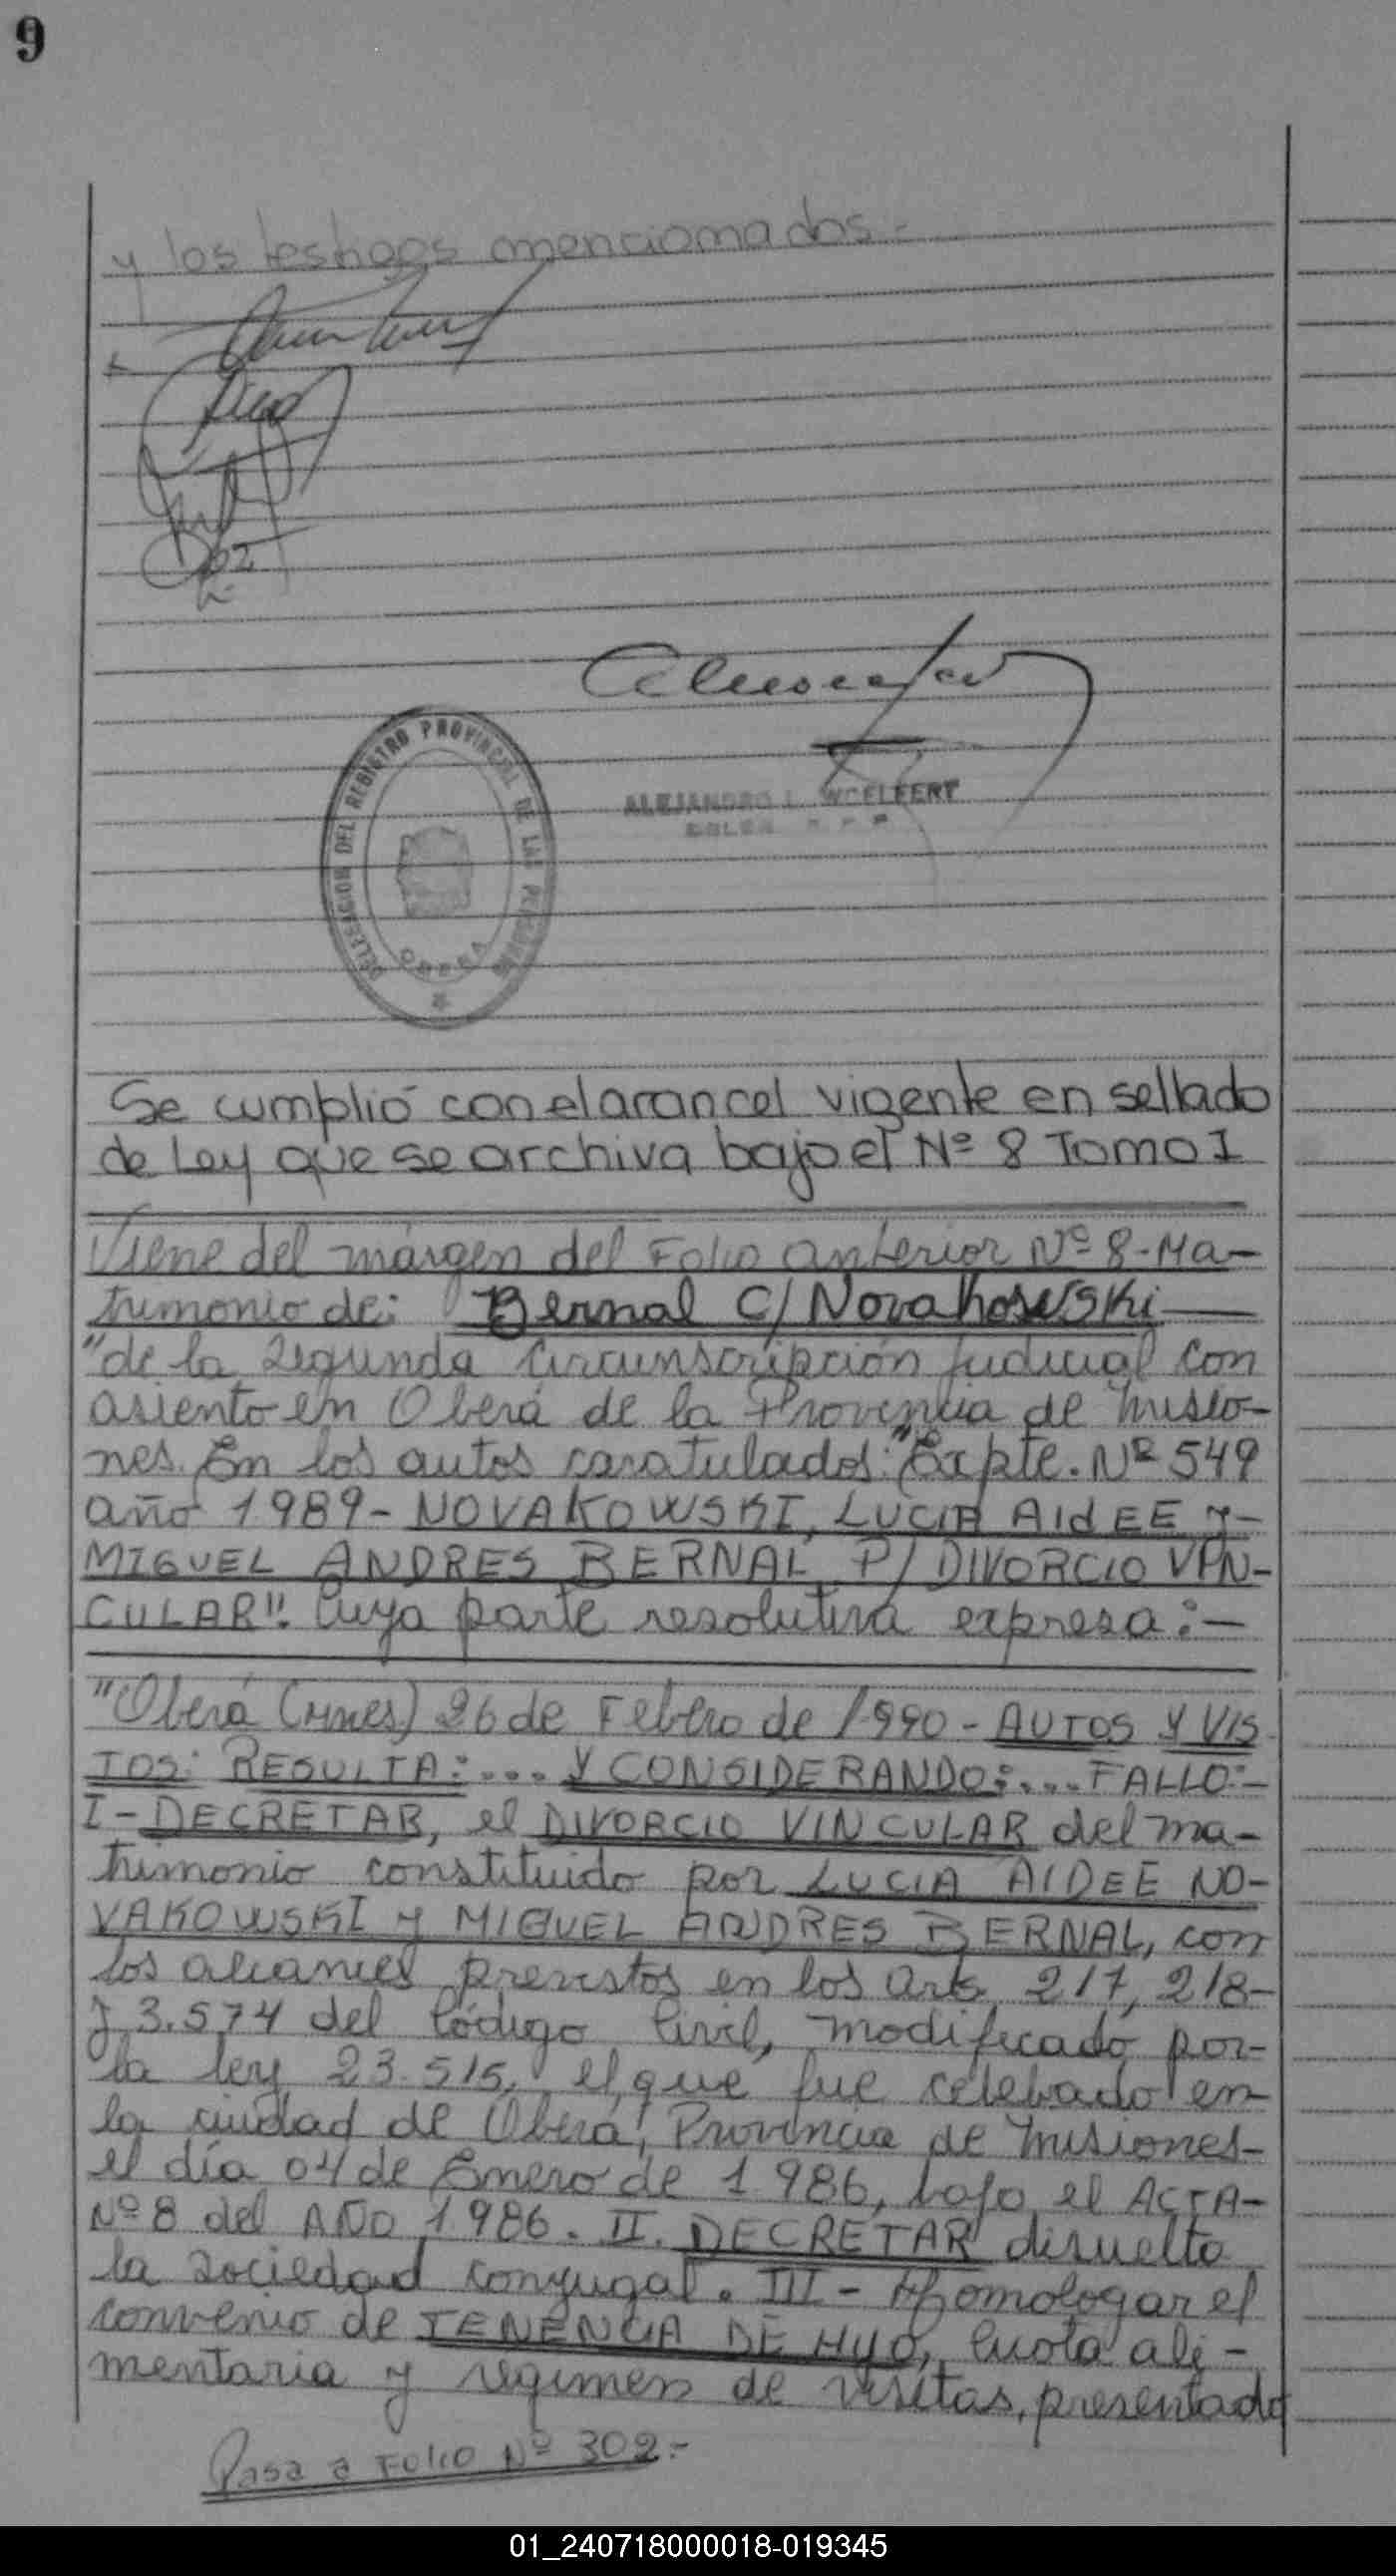 9
y los testigos mencionados.-
DELEGACION DEL REGISTRO PROVINCIAL DE LAS PERSONAS
OBERA
ALEJANDRO L. WOELFERT
Se cumplió con el arancel vigente en sellado
de Ley que se archiva bajo el Nº 8 Tomo I
Viene del márgen del Folio anterior Nº 8-Ma-
trimonio de: Bernal C/ Novakowski
"de la segunda Circunscripción Judicial con
asiento en Oberá de la Provincia de Misio-
nes. En los autos caratulados: "Expte. Nº 549
año 1989- NOVAKOWSKI, LUCIA AIdEE y-
MIGUEL ANDRES BERNAL P/ DIVORCIO VIN-
CULAR". Cuya parte resolutiva expresa:-
"Oberá (Mnes) 26 de Febrero de 1990- AUTOS Y VIS
TOS: RESULTA:... Y CONSIDERANDO:... FALLO:-
I- DECRETAR, el DIVORCIO VINCULAR del ma-
trimonio constituido por LUCIA AIDEE NO-
VAKOWSKI y MIGUEL ANDRES BERNAL, con
los alcances previstos en los Arts 217, 218-
y 3.574 del Código Civil, modificado por-
la ley 23.515, el que fue celebado en
la ciudad de Oberá, Provincia de Misiones-
el día 04 de Enero de 1986, bajo el ACTA-
Nº 8 del AÑO 1986. II. DECRETAR disuelta
la sociedad conyugal. III- Homologar el
convenio de TENENCIA DE HIJO, Cuota ali-
mentaria y regimen de visitas, presentado
Pasa a Folio Nº 302.-
01_240718000018-019345